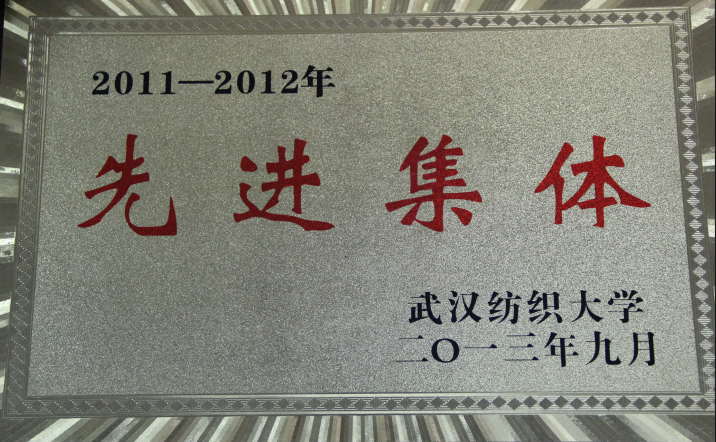 2011—2012年
先进集体
武汉纺织大学
二〇一三年九月